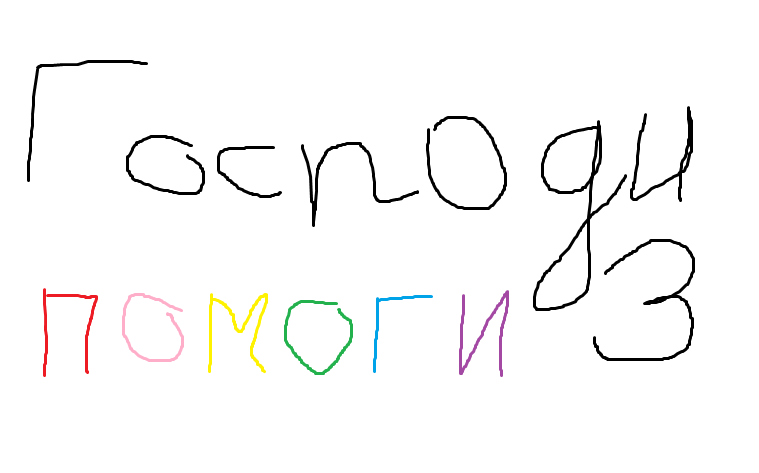 Господи
помоги 3